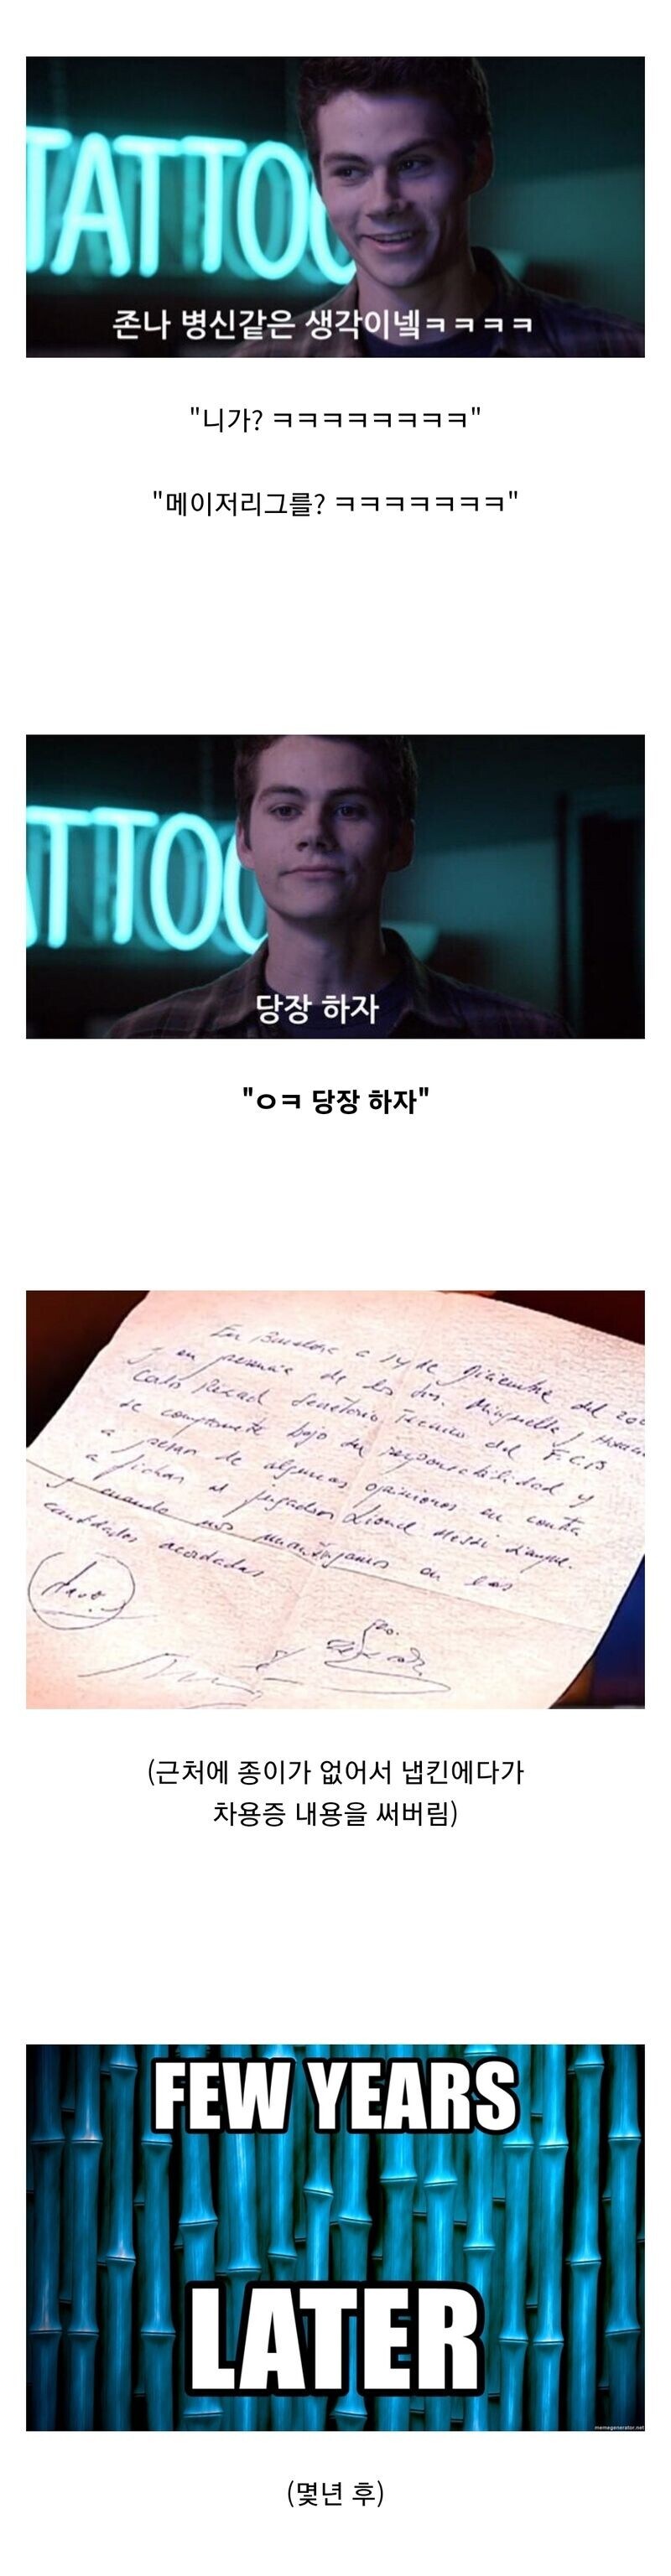 TATTOO
존나 병신같은 생각이넼ㅋㅋㅋㅋ
"니가? ㅋㅋㅋㅋㅋㅋㅋㅋ"
"메이저리그를? ㅋㅋㅋㅋㅋㅋㅋ"
ATTOO
당장 하자
"ㅇㅋ 당장 하자"
a 14 de Diciembre del 20
en presencia de los Sres. Minguella y
Carlo Rexach Secretario Técnico del F.C.B
se compromete bajo su responsabilidad y
a pesar de algunas opiniones en contra
a fichar al jugador Lionel Messi
y cuando nos mantengamos en las
cantidades acordadas
(근처에 종이가 없어서 냅킨에다가
차용증 내용을 써버림)
FEW YEARS
LATER
memegenerator.net
(몇년 후)